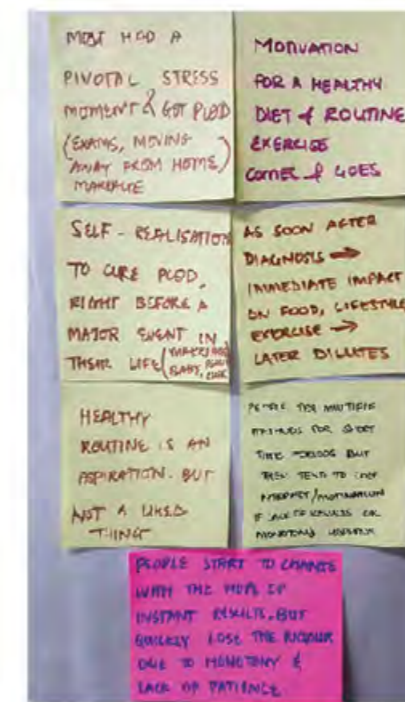 MOST HAD A
PIVOTAL STRESS
MOMENT & GOT PCOD
(EXAMS, MOVING
AWAY FROM HOME,)
MARRIAGE
MOTIVATION
FOR A HEALTHY
DIET & ROUTINE
EXERCISE
COMES & GOES
SELF-REALISATION
TO CURE PCOD,
RIGHT BEFORE A
MAJOR EVENT IN
THEIR LIFE
AS SOON AFTER
DIAGNOSIS →
IMMEDIATE IMPACT
ON FOOD, LIFESTYLE
EXERCISE →
LATER DILUTES
HEALTHY
ROUTINE IS AN
ASPIRATION. BUT
NOT A LIKED
THING
PEOPLE TRY MULTIPLE
METHODS FOR SHORT
TIME PERIODS BUT
THEN TEND TO LOSE
INTEREST/MOTIVATION
IF LACK OF RESULTS OR
MONOTONOUS
PEOPLE START TO CHANGE
WITH THE HOPE OF
INSTANT RESULTS, BUT
QUICKLY LOSE THE RIGOUR
DUE TO MONOTONY &
LACK OF PATIENCE